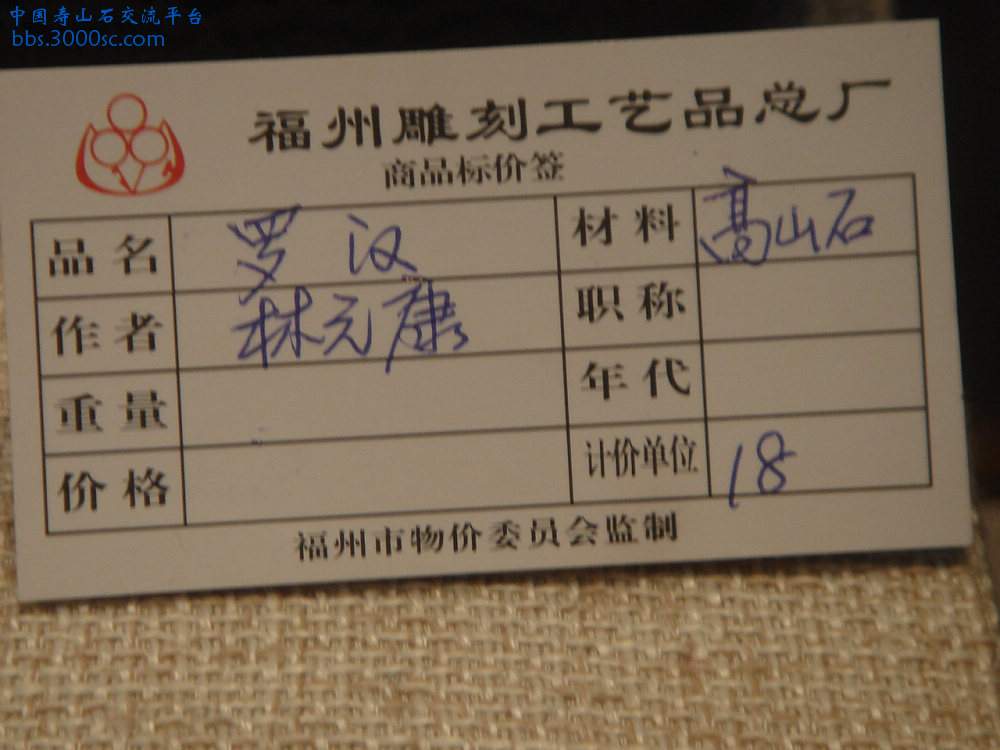 中国寿山石交流平台
bbs.3000sc.com
福州雕刻工艺品总厂
商品标价签
品名 罗汉 材料 高山石
作者 林元康 职称
重量 年代
价格 计价单位 18
福州市物价委员会监制